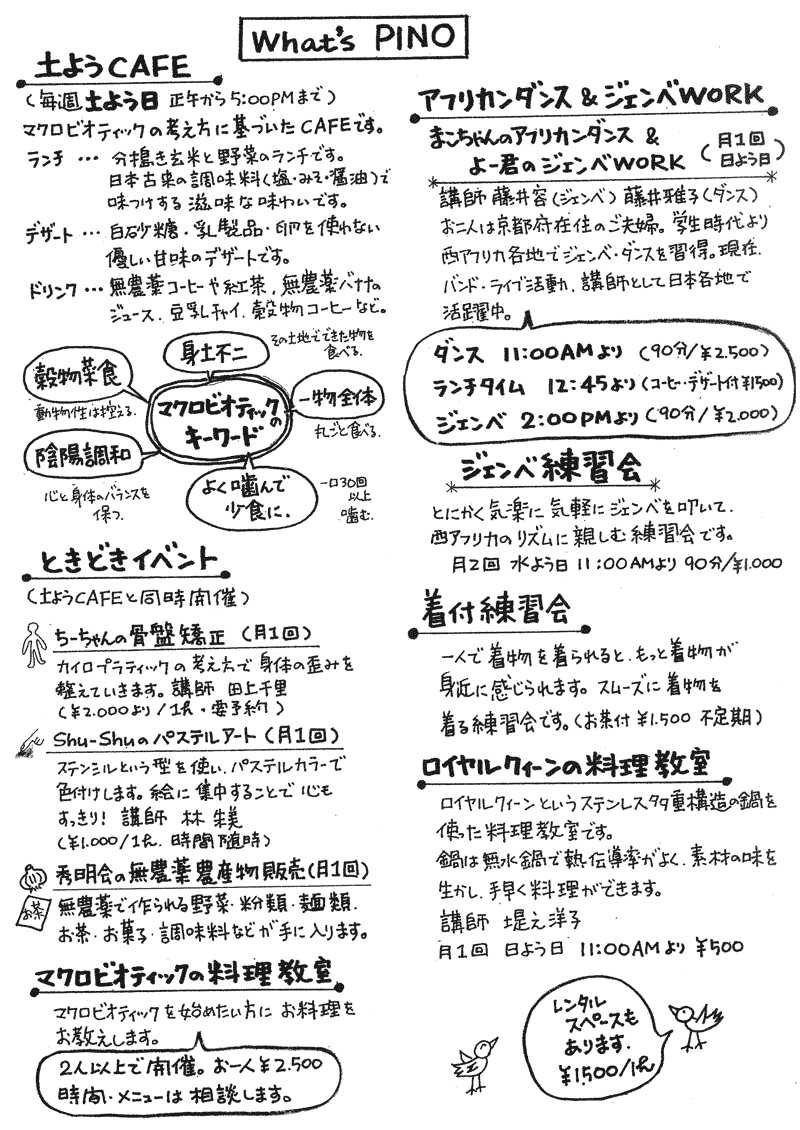 What's PINO
土ようCAFE
(毎週土よう日 正午から5:00PMまで)
マクロビオティックの考え方に基づいたCAFEです。
ランチ … 分搗き玄米と野菜のランチです。
日本古来の調味料(塩・みそ・醤油)で
味つけする滋味な味わいです。
デザート … 白砂糖・乳製品・卵を使わない
優しい甘味のデザートです。
ドリンク … 無農薬コーヒーや紅茶、無農薬バナナの
ジュース、豆乳チャイ、穀物コーヒーなど。
身土不二
その土地でできた物を
食べる。
穀物菜食
動物性は控える。
マクロビオティックの
キーワード
一物全体
丸ごと食べる。
陰陽調和
心と身体のバランスを
保つ。
よく噛んで
少食に。
一口30回
以上
噛む。
ときどきイベント
(土ようCAFEと同時開催)
ちーちゃんの骨盤矯正 (月1回)
カイロプラティックの考え方で身体の歪みを
整えていきます。講師 田上千里
(¥2.000より/1h・要予約)
Shu-Shuのパステルアート (月1回)
ステンシルという型を使い、パステルカラーで
色付けします。絵に集中することで心も
すっきり! 講師 林 朱美
(¥1.000/1h. 時間随時)
秀明会の無農薬農産物販売(月1回)
お茶
無農薬で作られる野菜・粉類・麺類、
お茶・お菓子・調味料などが手に入ります。
マクロビオティックの料理教室
マクロビオティックを始めたい方に お料理を
お教えします。
2人以上で開催。お一人¥2.500
時間・メニューは相談します。
アフリカンダンス & ジェンベWORK
まこちゃんのアフリカンダンス &
よー君のジェンベWORK
(月1回
日よう日)
講師 藤井容(ジェンベ) 藤井雅子(ダンス)
お二人は京都府在住のご夫婦。学生時代より
西アフリカ各地でジェンベ・ダンスを習得。現在、
バンド・ライブ活動、講師として日本各地で
活躍中。
ダンス 11:00AMより (90分/¥2.500)
ランチタイム 12:45より(コーヒー・デザート付¥1500)
ジェンベ 2:00PMより(90分/¥2.000)
ジェンベ練習会
とにかく気楽に 気軽にジェンベを叩いて、
西アフリカのリズムに親しむ練習会です。
月2回 水よう日 11:00AMより 90分/¥1.000
着付練習会
一人で着物を着られると、もっと着物が
身近に感じられます。スムーズに着物を
着る練習会です。(お茶付¥1.500 不定期)
ロイヤルクィーンの料理教室
ロイヤルクィーンというステンレス多重構造の鍋を
使った料理教室です。
鍋は無水鍋で熱伝導率がよく、素材の味を
生かし、手早く料理ができます。
講師 堤え洋子
月1回 日よう日 11:00AMより ¥500
レンタル
スペースも
あります。
¥1500/1h